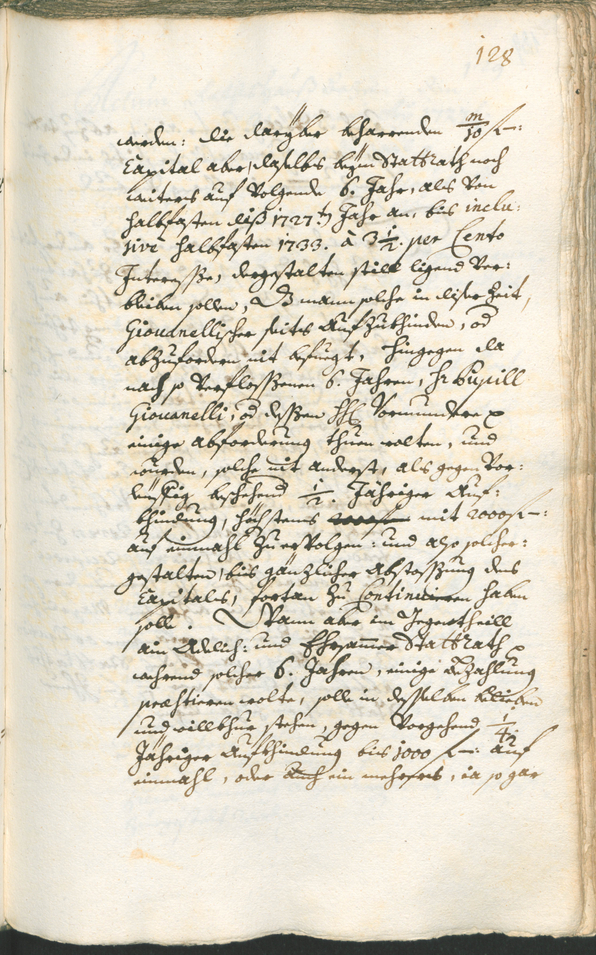 128
werden: die darüber beharrenden m/10 f:
Capital aber, daselbs beym Stattrath noch
weiters auf volgende 6. Jahr, als von
halbfasten diß 1727.t Jahr an, bis inclu:
sive halbfasten 1733. a 3 1/2. per Cento
Interesse, dergestalten still ligend ver:
bleiben sollen, dz mann solche in diser Zeit,
Giovanellischer seits aufzukhinden, od
abzufordern nit befuegt, hingegen da
nach so verflossenen 6. Jahren, hr Pupill
Giovanelli, od dessen hhl Vormundere
einige abforderung thuen wolten, und
wurden, solche nit anderst, als gegen vor:
leuffig beschehend 1/2. Jähriger auf:
khindung, höchstens 2000 f mit 2000 f:
auf einmahl zu ervolgen: und also solcher:
gestalten, bis gänzlicher abstossung des
Capitals, fortan zu continuieren haben
solle. Wann aber im Gegentheill
ain Adelich: und Ehrsammer Stattrath
während solcher 6. Jahren, einige bezahlung
præstieren wolte, solle in desselben belieben
und willkhur stehen, gegen vorgehend 1/4
Jähriger aufkhindung bis 1000 f: auf
einmahl, oder auch ein mehrers, ia so gar